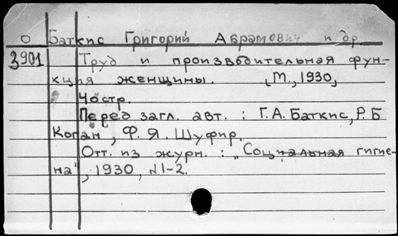 О Баткис Григорий Абрамович и др.
3901 Труд и производительная фун-
кция женщины. М., 1930,
40стр.
Перед загл. авт.: Г.А. Баткис, Р.Б
Коган, Ф.Я. Шуфир.
Отт. из журн.: „Социальная гигие-
на", 1930, №1-2.